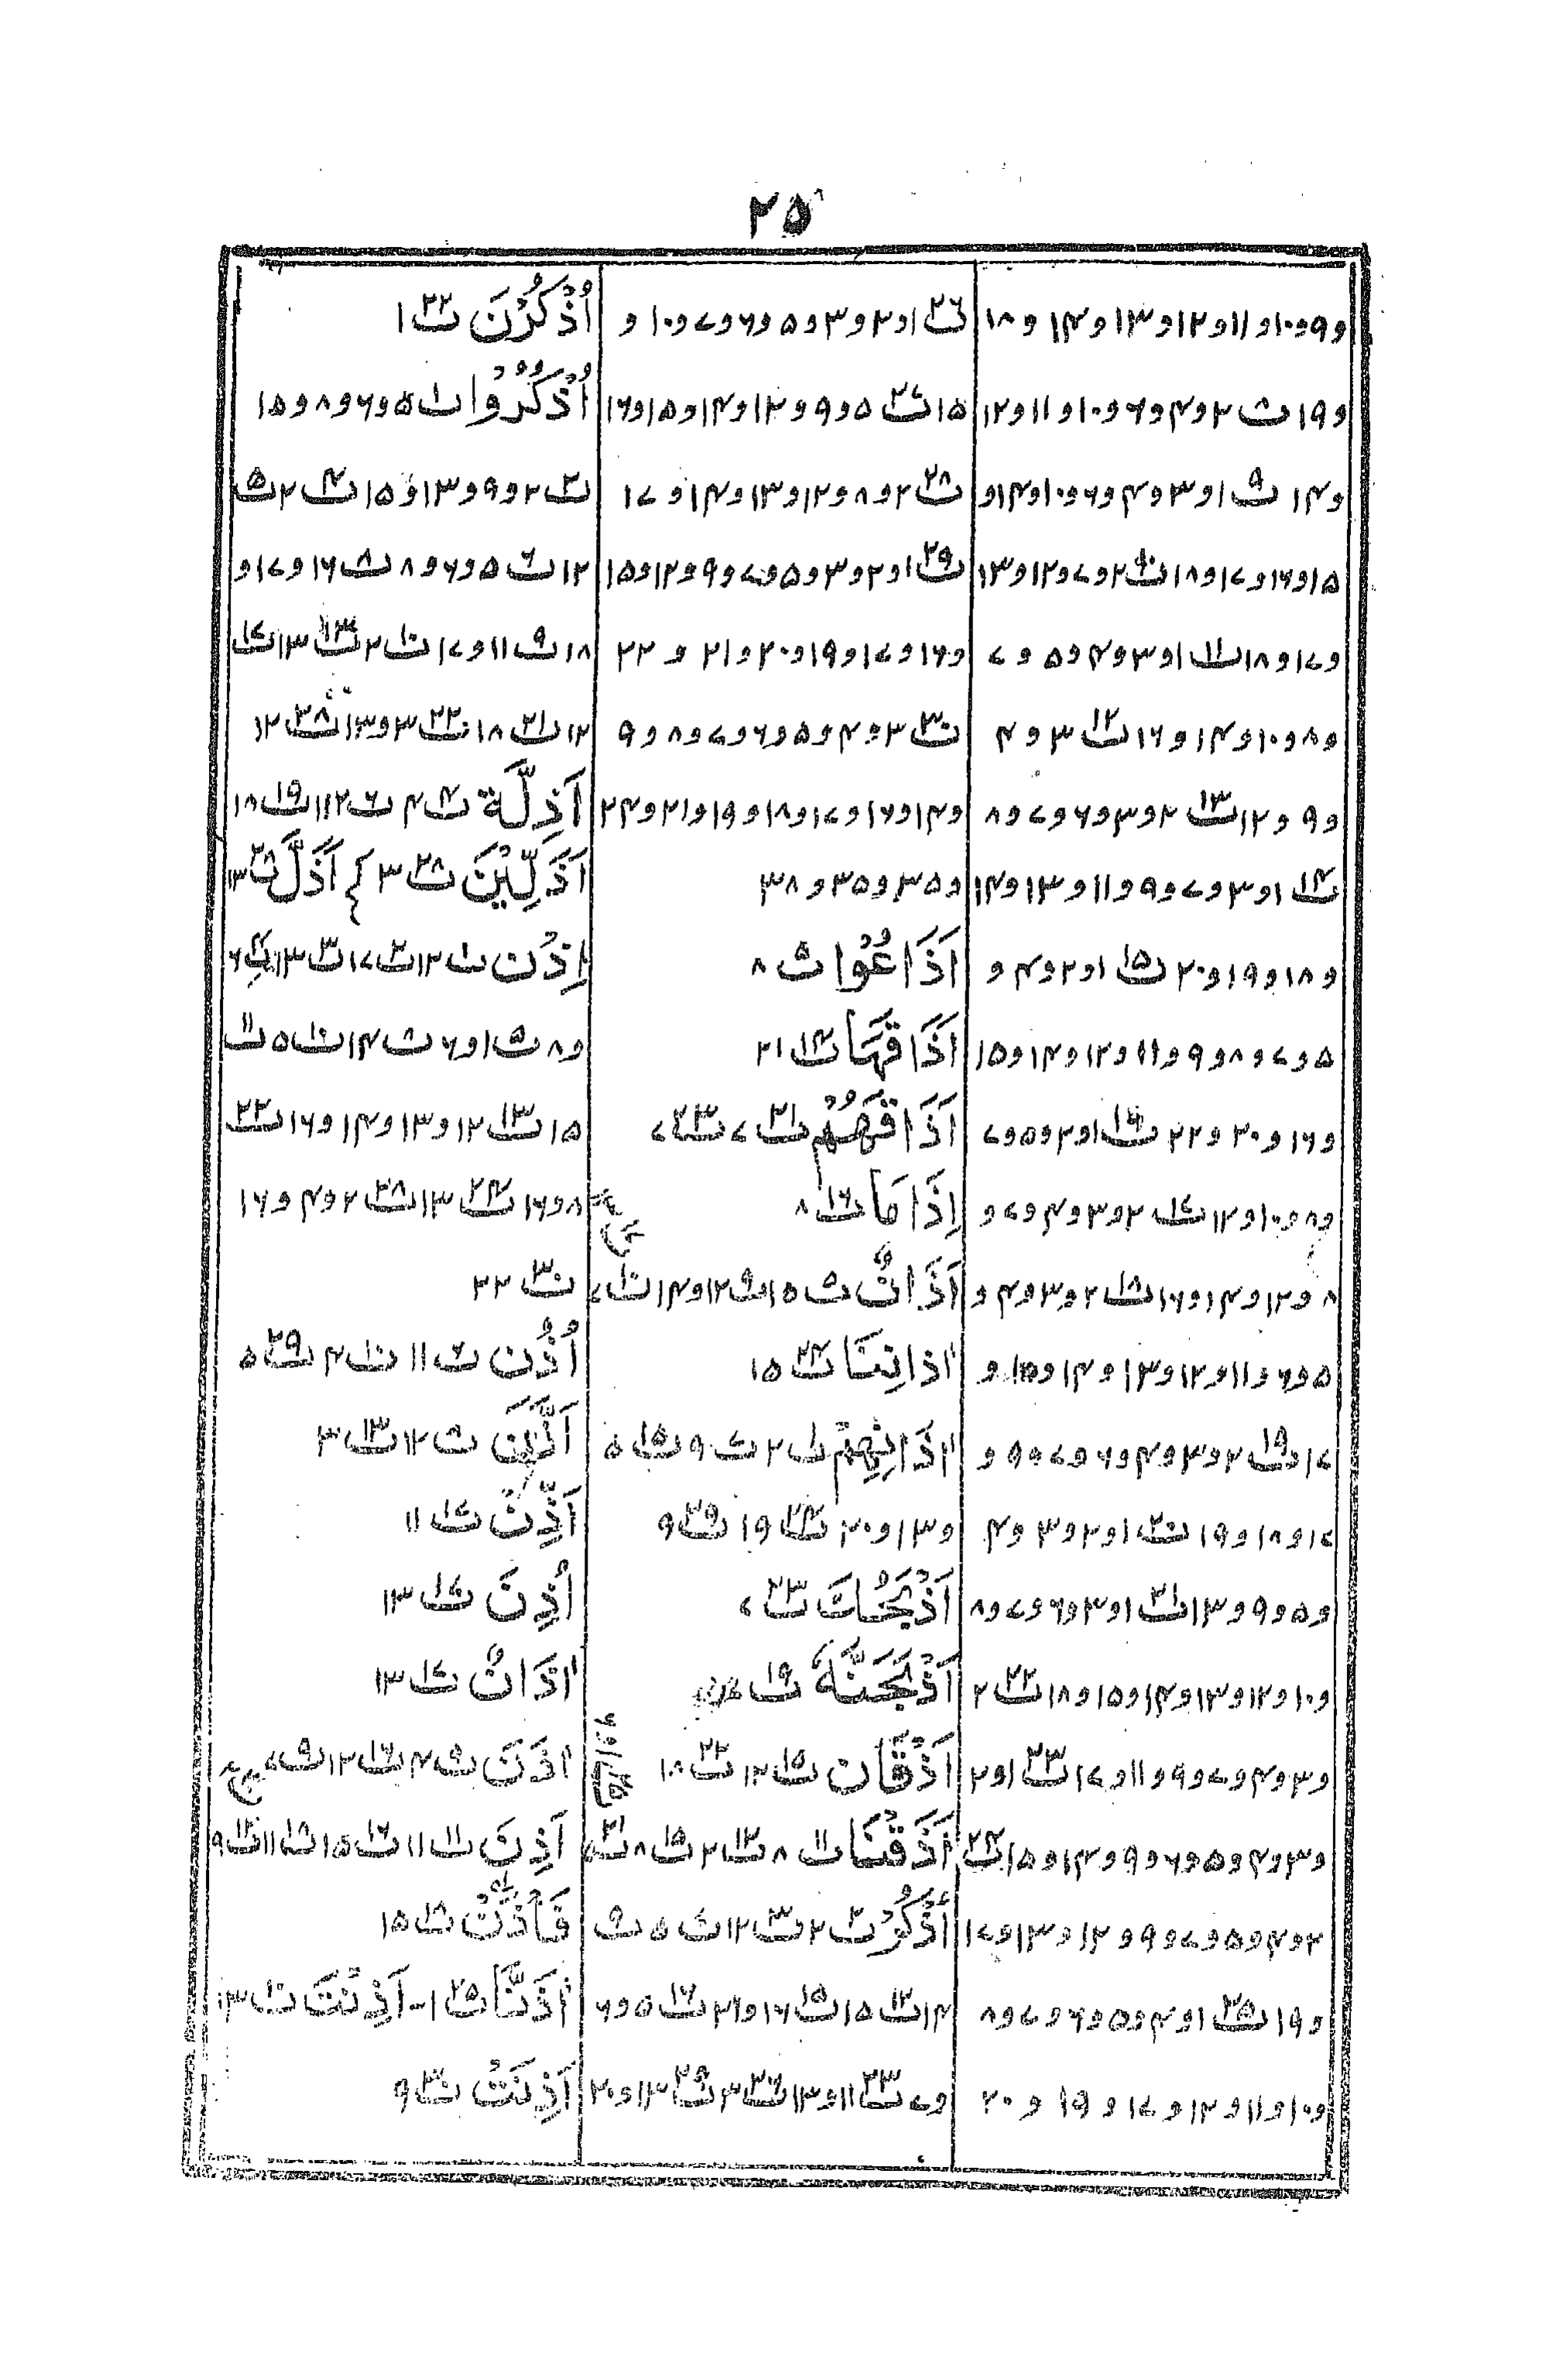 ۲۵
و۹و۱۰و۱۱و۱۲و۱۳و۱۴ و ۱۸
و ۱۹ ث۸ ۲و۴و۶و۱۰و ۱۱و۱۲
و۱۴ ث۹ ۱و۳و۴و۶و۱۰و۱۴و
۱۵و۱۶و۱۷و۱۸ث۱۰ ۲و۷و۱۲و۱۳
و۱۷و۱۸ث۱۱ ۱و۳و۴و۵ و ۷
و۸و۱۰و۱۴و ۱۶ث۱۲ ۳و ۴
و ۹ و ۱۲ث۱۳ ۲و۳و۶و۷و۸
ث۱۴ ۱و۳و۷و۹و۱۱و۱۳و۱۴
و ۱۸و۱۹و۲۰ ث۱۵ ۱و۲و۴ و
۵و۷و۸و۹و۱۱و۱۲و۱۴و۱۵
و۱۶ و ۲۰ و۲۲ ث۱۶ ۱و۲و۵و۷
و۸و۱۰و۱۲ث۱۷ ۲و۳و۴و۷و
۸ و۱۲و۱۴و۱۶ث۱۸ ۲و۳و۴و
۵و۶و۱۱و۱۲و۱۳و۱۴و۱۵ و
۱۷ث۱۹ ۲و۳و۴و۶و۷و۹ و
۱۷و۱۸و ۱۹ ث۲۰ ۱و۲و۳ و۴
و۵و۹و ۱۳ث۲۱ ۱و۳و۶و۷و۸
و۱۰و۱۲و۱۳و۱۴و۱۵و۱۸ث۲۲ ۲
و۳و۴و۷و۹و۱۱و ۱۷ث۲۳ ۱و۲
و۳و۴و۵و۶و۹و۱۴و۱۵ث۲۴
۲و۴و۵و۷و۹و۱۲و۱۳و۱۷
و ۱۹ث۲۵ ۱و۴و۵و۶و۷و۸
و۱۰و۱۱و۱۲و ۱۷ و ۱۹ و ۲۰
ث۲۶ ۱و۲و۳و۵و۶و۷و۱۰ و
۱۵ث۲۷ ۵و۹و۱۲و۱۴و۱۵و۱۶
ث۲۸ ۲و۸و۱۲و۱۳و۱۴و ۱۷
ث۲۹ ۱و۲و۳و۵و۷و۹و۱۲و۱۵
و۱۶و۱۷و۱۹و۲۰و۲۱ و ۲۲
ث۳۰ ۳و۴و۵و۶و۷و۸و ۹
و۱۴و۱۶و۱۷و۱۸و۱۹و۲۱و۲۴
و۲۵و۳۵ و ۳۸
اَذَاعُوْا ث۵ ۸
اَذَاقَهَا ث۱۴ ۲۱
اَذَاقَهُمْ ث۲۱ ۷ ث۲۳ ۷
اِذَا مَا ث۱۶ ۸
اَذَانٌ ث۹ ۱۵ث۹ ۱۲و۱۴ث۱۰ ۷
اٰذانِنَا ث۲۴ ۱۵
اٰذَانِهِمْ ث۱ ۲ ث۷ ۹ ث۱۵ ۵
و۱۳و۲۰ ث۲۴ ۱۹ ث۲۹ ۹
اَذْبَحُكَ ث۲۳ ۷
اَذْبَحَنَّهٗ ث۱۹
اَذْقَان ث۱۵ ۱۲ ث۲۲ ۱۸
اَذَقْنَا ث۱۱ ۸ ث۱۲ ۲ ث۱۵ ۸ ث۲۱
اُذْكُرْ ث۲ ۲ ث۳ ۱۲ ث۷ ۵ ث۹
۱۴ث۱۲ ۱۵ث۱۵ ۱۶و۲۱ث۱۶ ۵و۶
و۷ث۲۳ ۱۱و۱۳ث۲۶ ۳ث۲۹ ۱۳و۲۰
اُذْكُرْنَ ث۲۲ ۱
اُذْكُرُوْا ث۱ ۵و۶و۸و۱۵
ث۲ ۲و۹و۱۳و۱۵ث۴ ۲ث۵
۱۲ث۶ ۵و۶و۸ ث۸ ۱۶و۱۷و
۱۸ث۹ ۱۱و۱۷ث۱۰ ۲ث۱۳ ۱۳ث۱۷
۱۲ث۲۱ ۱۸ث۲۲ ۳و۱۳ث۲۸ ۱۲
اَذِلَّة ث۴ ۴ ث۶ ۱۲ث۱۹ ۱۸
اَذَلِّيْنَ ث۲۸ ۳ اَذَلّ ث۲۸ ۱۳
اِذْن ث۱ ۱۲ث۲ ۱۷ث۳ ۱۳ث۴ ۶
و۸ث۵ ۱و۶ ث۸ ۱۴ث۱۰ ۵ث۱۱
۱۵ث۱۳ ۱۲و۱۳و۱۴و۱۶ث۲۲
۸و۱۶ث۲۴ ۱۳ث۲۸ ۲و۴و ۱۶
ث۳۰ ۲۲
اُذُن ث۶ ۱۱ ث۱۰ ۴ ث۲۹ ۵
اَذَّنَ ث۸ ۱۲ ث۱۳ ۳
اَذِّنْ ث۱۷ ۱۱
اُذِنَ ث۱۷ ۱۳
اٰذَانٌ ث۱۷ ۱۳
اٰذَنَ ث۹ ۴ ث۱۶ ۱۲ث۹ ۷
اَذِنَ ث۱۱ ۱۱ث۱۶ ۱۵ث۱۸ ۱۱ث۱۲ ۹
فَأْذَنْ ث۱۸ ۱۵
اٰذَنّٰا ث۲۵ ۱- اَذِنْتَ ث۱۰ ۱۳
اَذِنَتْ ث۳۰ ۹